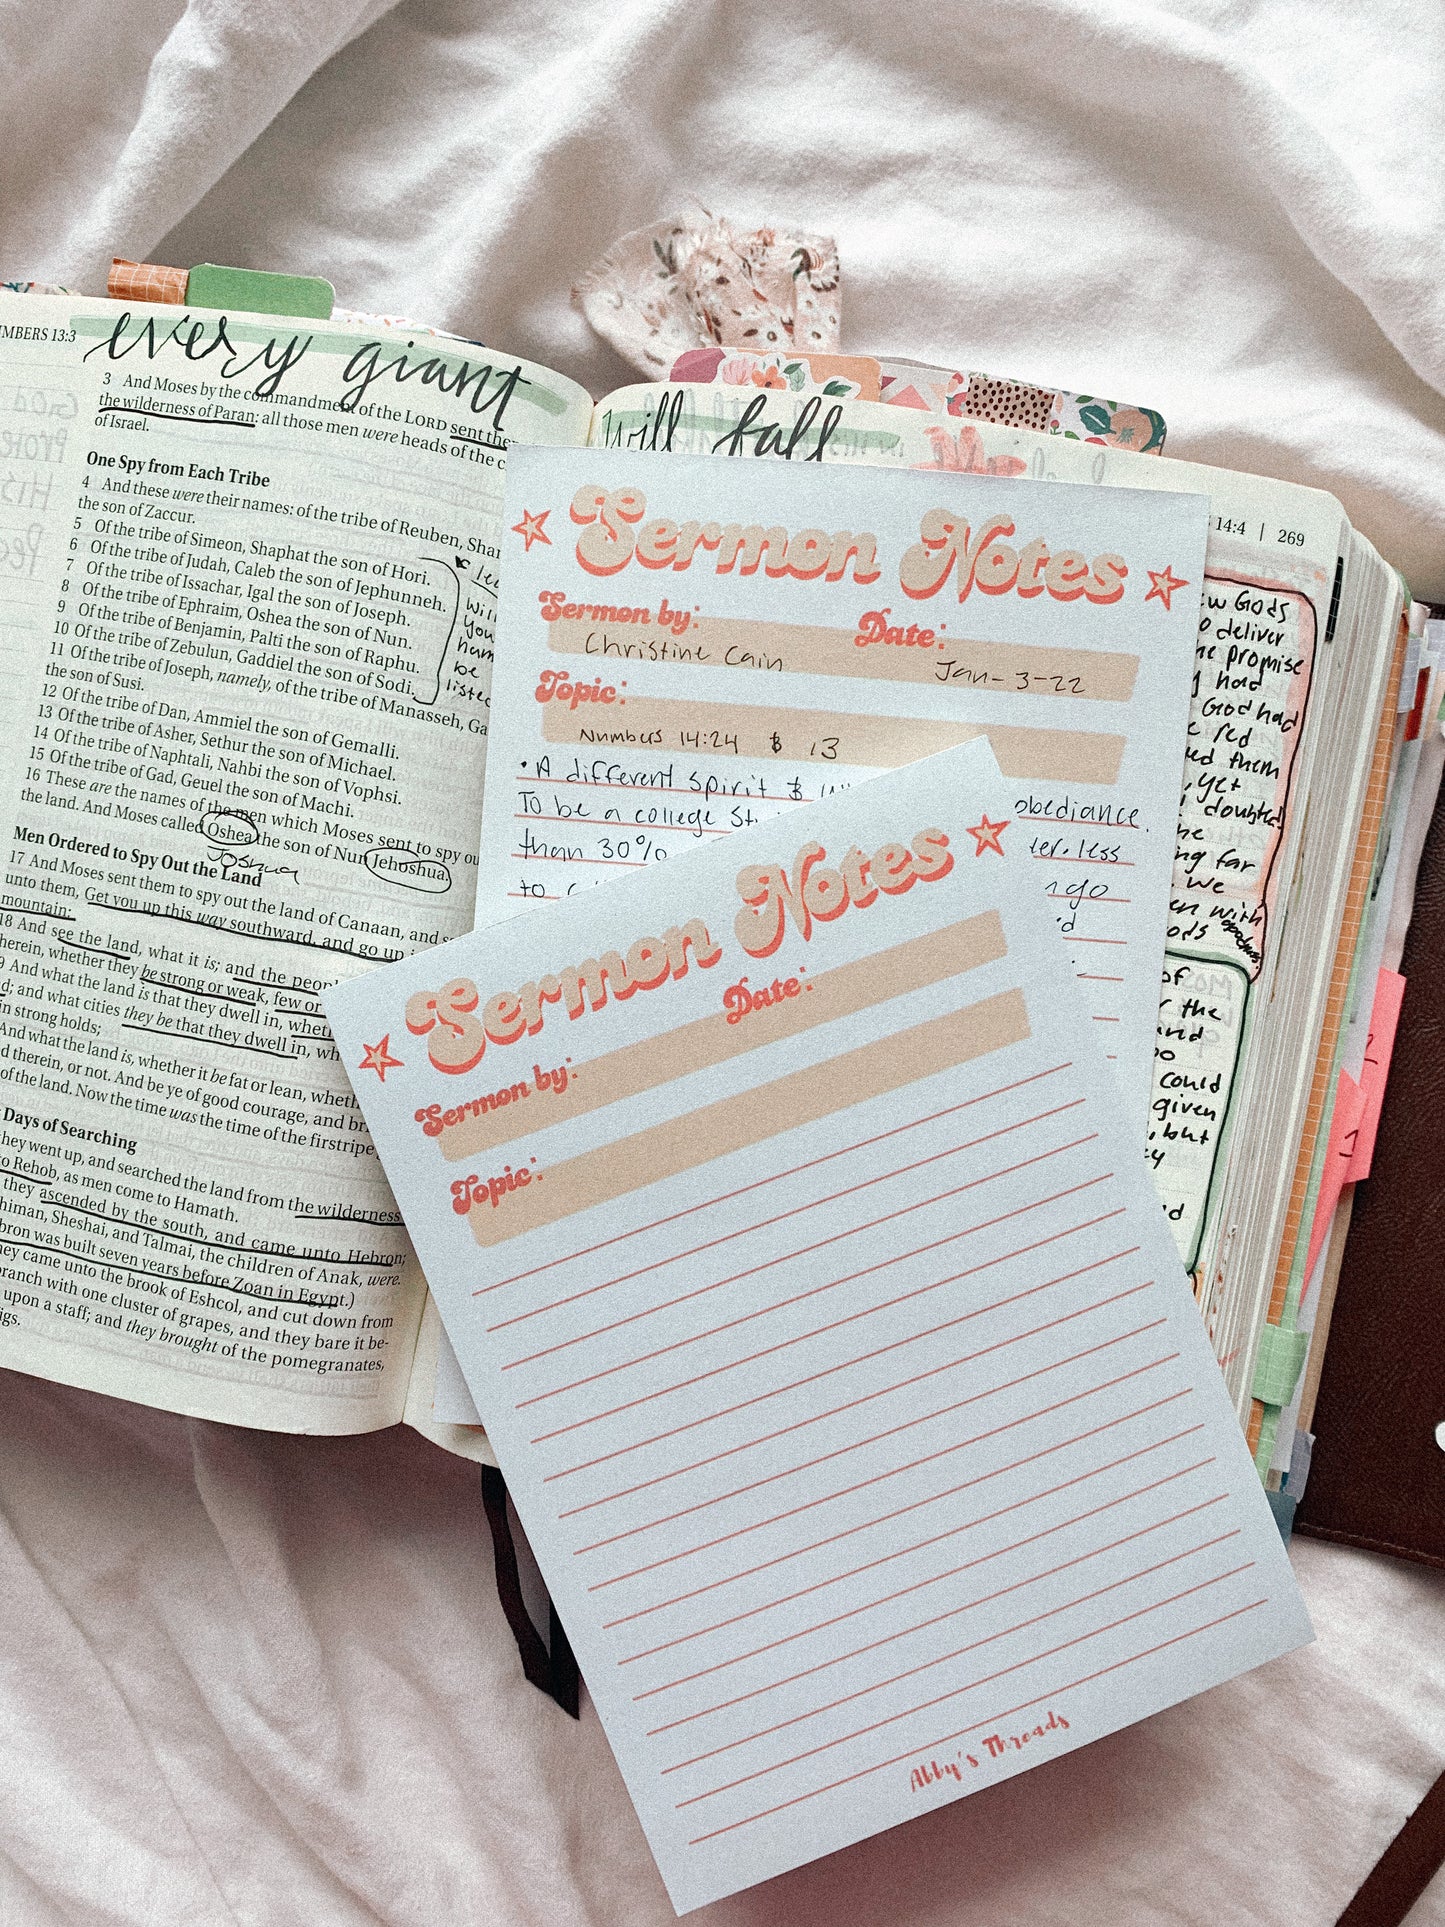 MBERS 13:3
every giant
3 And Moses by the commandment of the LORD sent the
the wilderness of Paran: all those men were heads of the c
of Israel.
One Spy from Each Tribe
4 And these were their names: of the tribe of Reuben, Sham
the son of Zaccur.
5 Of the tribe of Simeon, Shaphat the son of Hori.
6 Of the tribe of Judah, Caleb the son of Jephunneh.
7 Of the tribe of Issachar, Igal the son of Joseph.
8 Of the tribe of Ephraim, Oshea the son of Nun.
9 Of the tribe of Benjamin, Palti the son of Raphu.
10 Of the tribe of Zebulun, Gaddiel the son of Sodi.
11 Of the tribe of Joseph, namely, of the tribe of Manasseh, Ga
the son of Susi.
12 Of the tribe of Dan, Ammiel the son of Gemalli.
13 Of the tribe of Asher, Sethur the son of Michael.
14 Of the tribe of Naphtali, Nahbi the son of Vophsi.
15 Of the tribe of Gad, Geuel the son of Machi.
16 These are the names of the men which Moses sent to spy ou
the land. And Moses called Oshea the son of Nun Jehoshua.
Joshua
Men Ordered to Spy Out the Land
17 And Moses sent them to spy out the land of Canaan, and s
unto them, Get you up this way southward, and go up i
mountain:
18 And see the land, what it is; and the peopl
herein, whether they be strong or weak, few or
9 And what the land is that they dwell in, whet
d; and what cities they be that they dwell in, wh
in strong holds;
And what the land is, whether it be fat or lean, wheth
d therein, or not. And be ye of good courage, and bri
of the land. Now the time was the time of the firstripe
Days of Searching
they went up, and searched the land from the wilderness
to Rehob, as men come to Hamath.
they ascended by the south, and came unto Hebron;
himan, Sheshai, and Talmai, the children of Anak, were.
bron was built seven years before Zoan in Egypt.)
ey came unto the brook of Eshcol, and cut down from
ranch with one cluster of grapes, and they bare it be-
upon a staff; and they brought of the pomegranates,
igs.
Will
you
nam
be
listed
will fall
14:4 | 269
Sermon Notes
Sermon by: Date:
Christine Cain Jan-3-22
Topic:
Numbers 14:24 & 13
• A different spirit &
To be a college St
obediance.
than 30%
less
to
go
w Gods
o deliver
he promise
had
God had
red
ed them
, yet
doubted
he
ng far
we
en with
ods
of
the
and
could
given
, but
Sermon Notes
Sermon by: Date:
Topic:
Abby's Threads
2
1